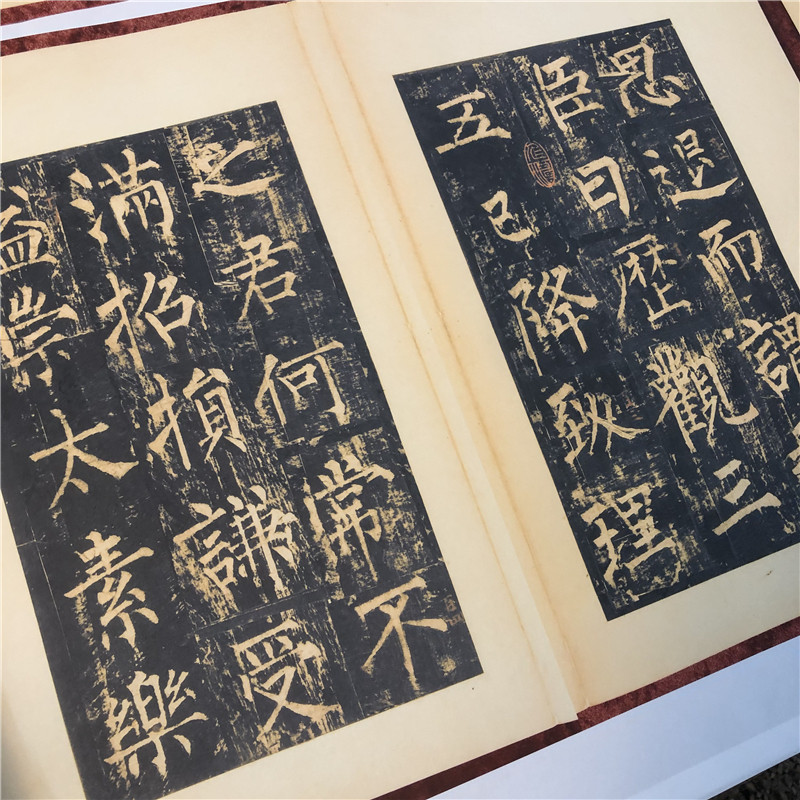 思退而謂
臣曰歴觀三
五已降致理
之君何常不
滿招損謙受
益崇太素樂